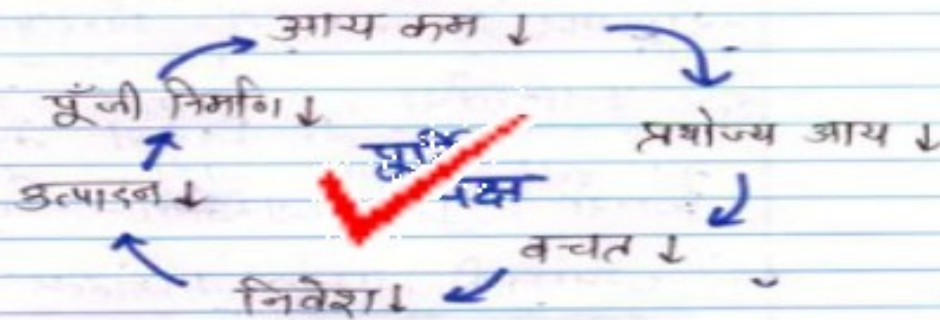 आय कम ↓
प्रयोज्य आय ↓
बचत ↓
निवेश ↓
उत्पादन ↓
पूँजी निर्माण ↓
पूर्ति
पक्ष